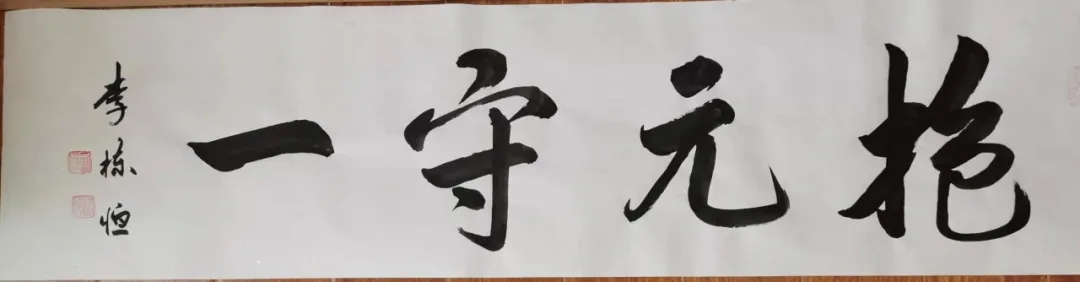 抱元守一
李栋恒